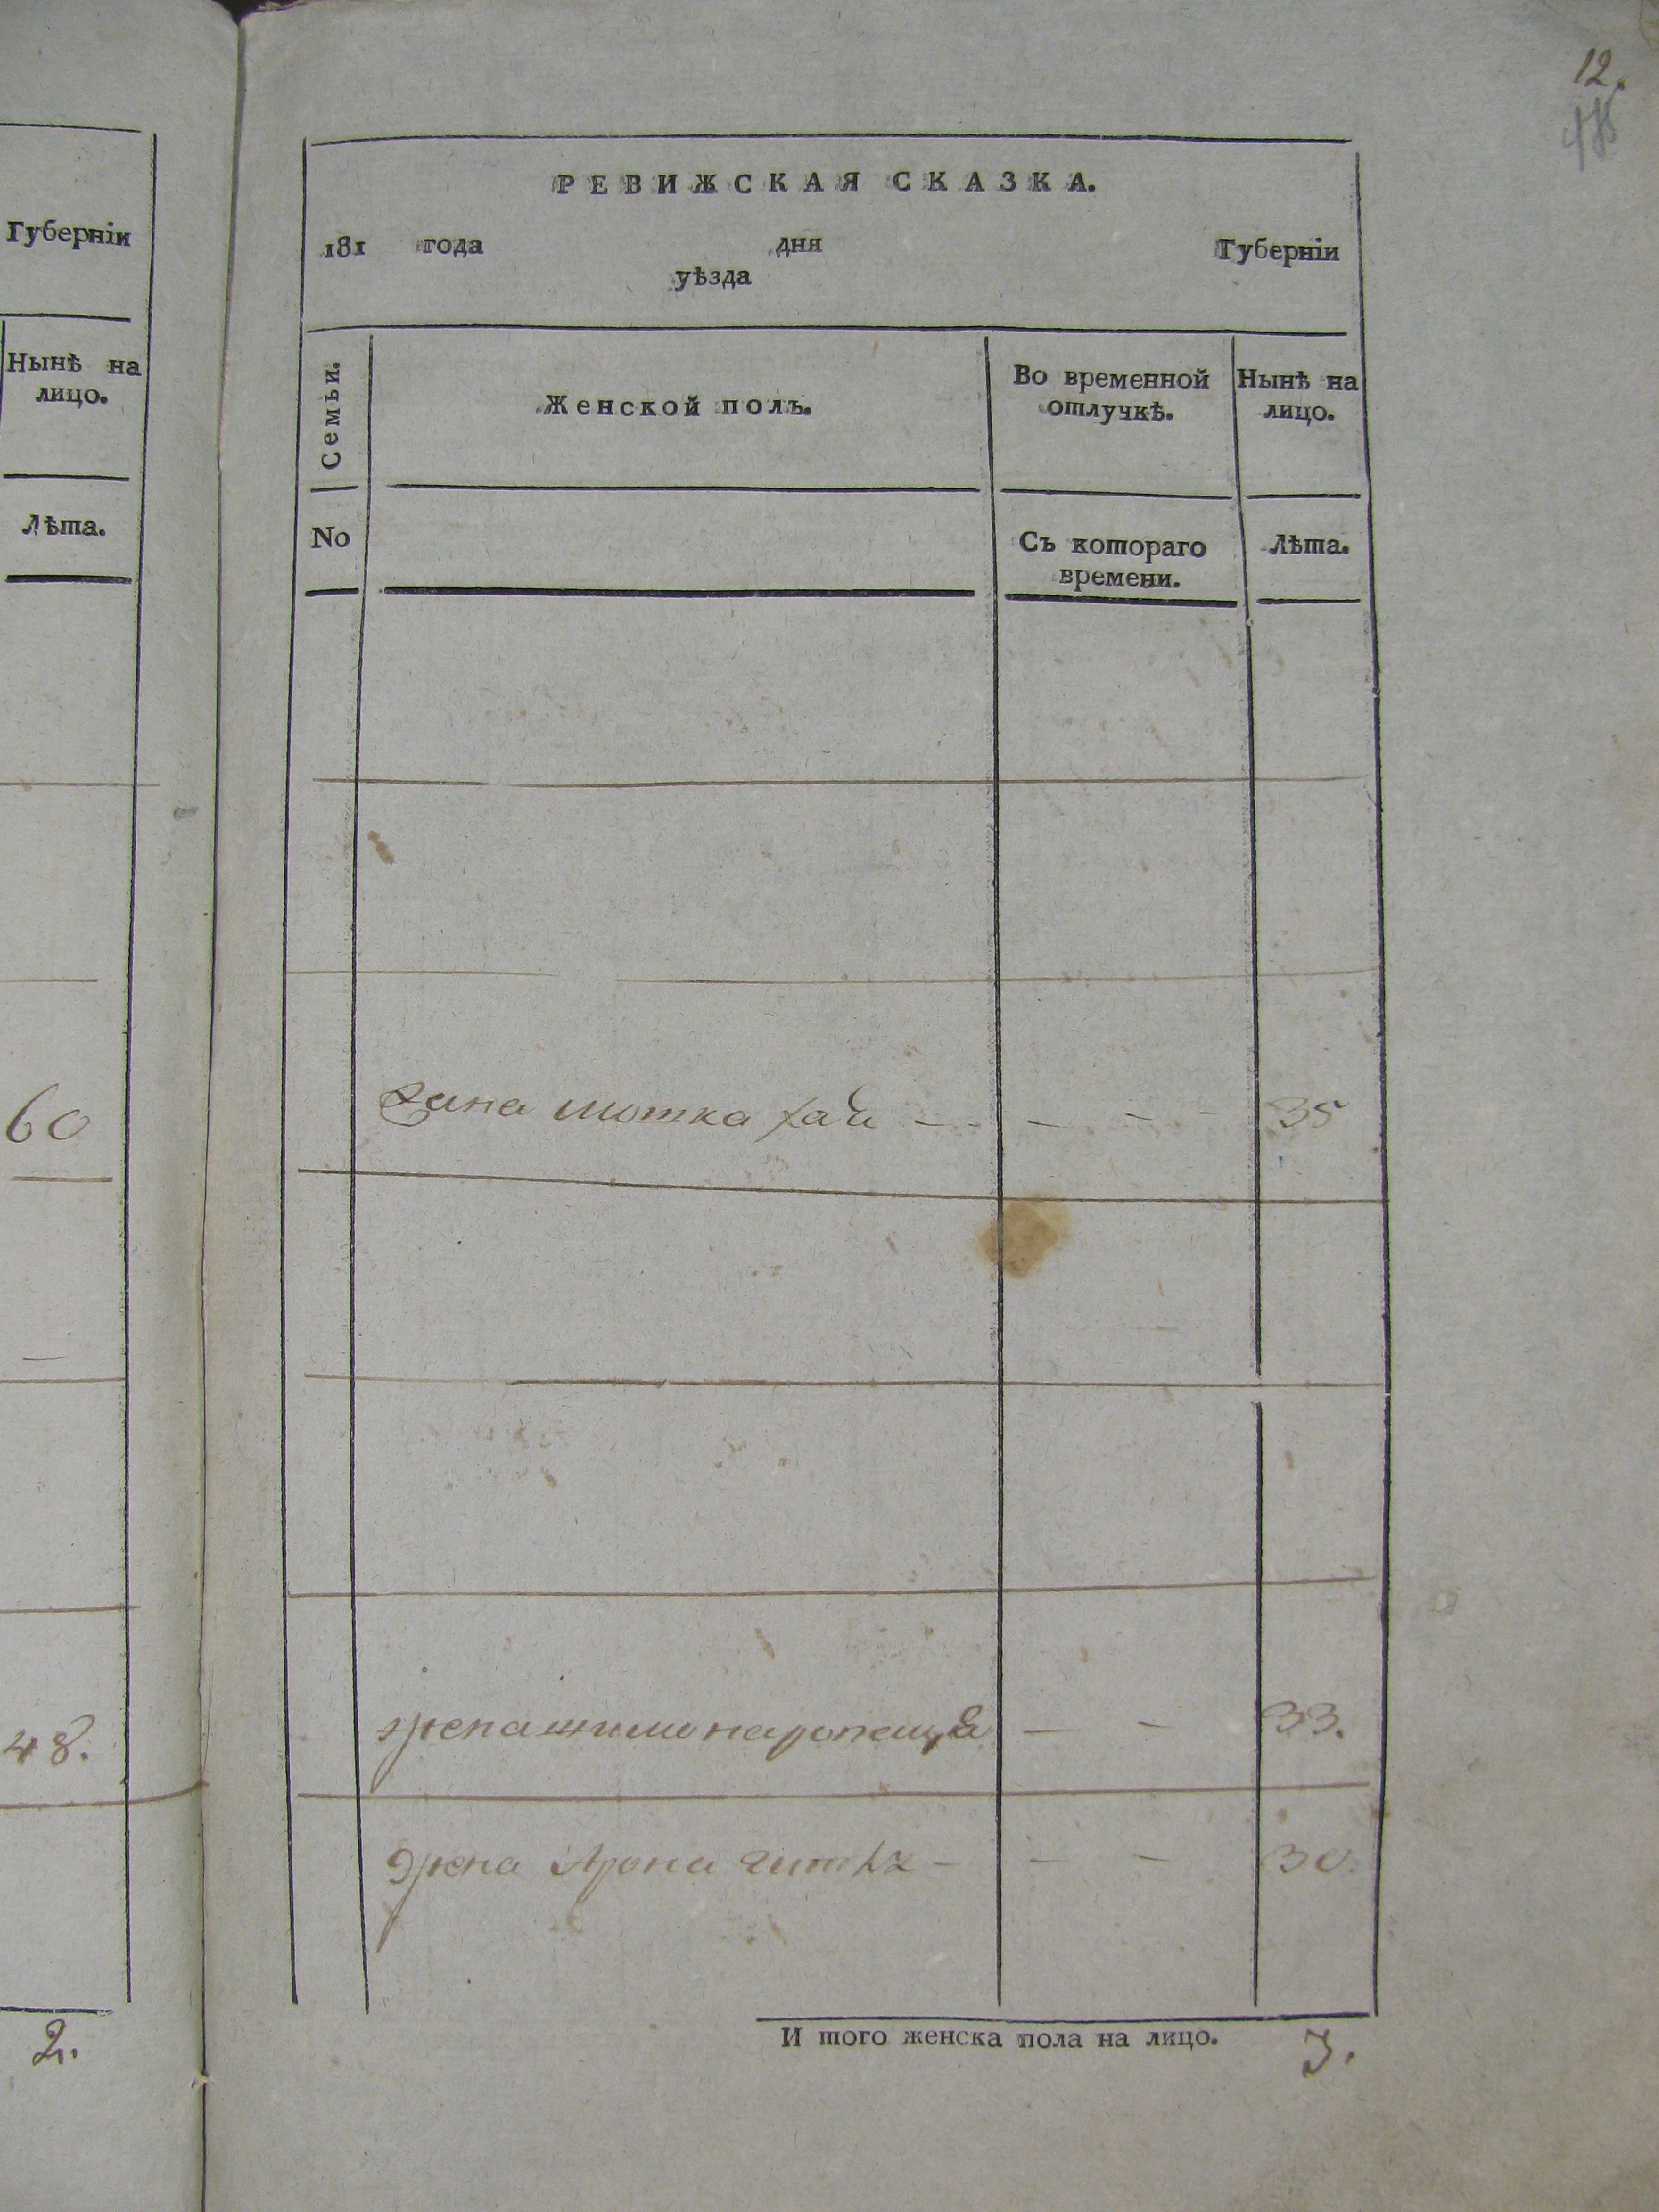 Губерніи
Нынѣ на
лицо.
Лѣта.
60
48.
2.
12.
РЕВИЖСКАЯ СКАЗКА.
181 года дня Губерніи
уѣзда
Семьи.
Женской полъ.
Во временной
отлучкѣ.
Нынѣ на
лицо.
No
Съ котораго
времени.
Лѣта.
мотка 35
33.
Арона 30.
И того женска пола на лицо. 3.